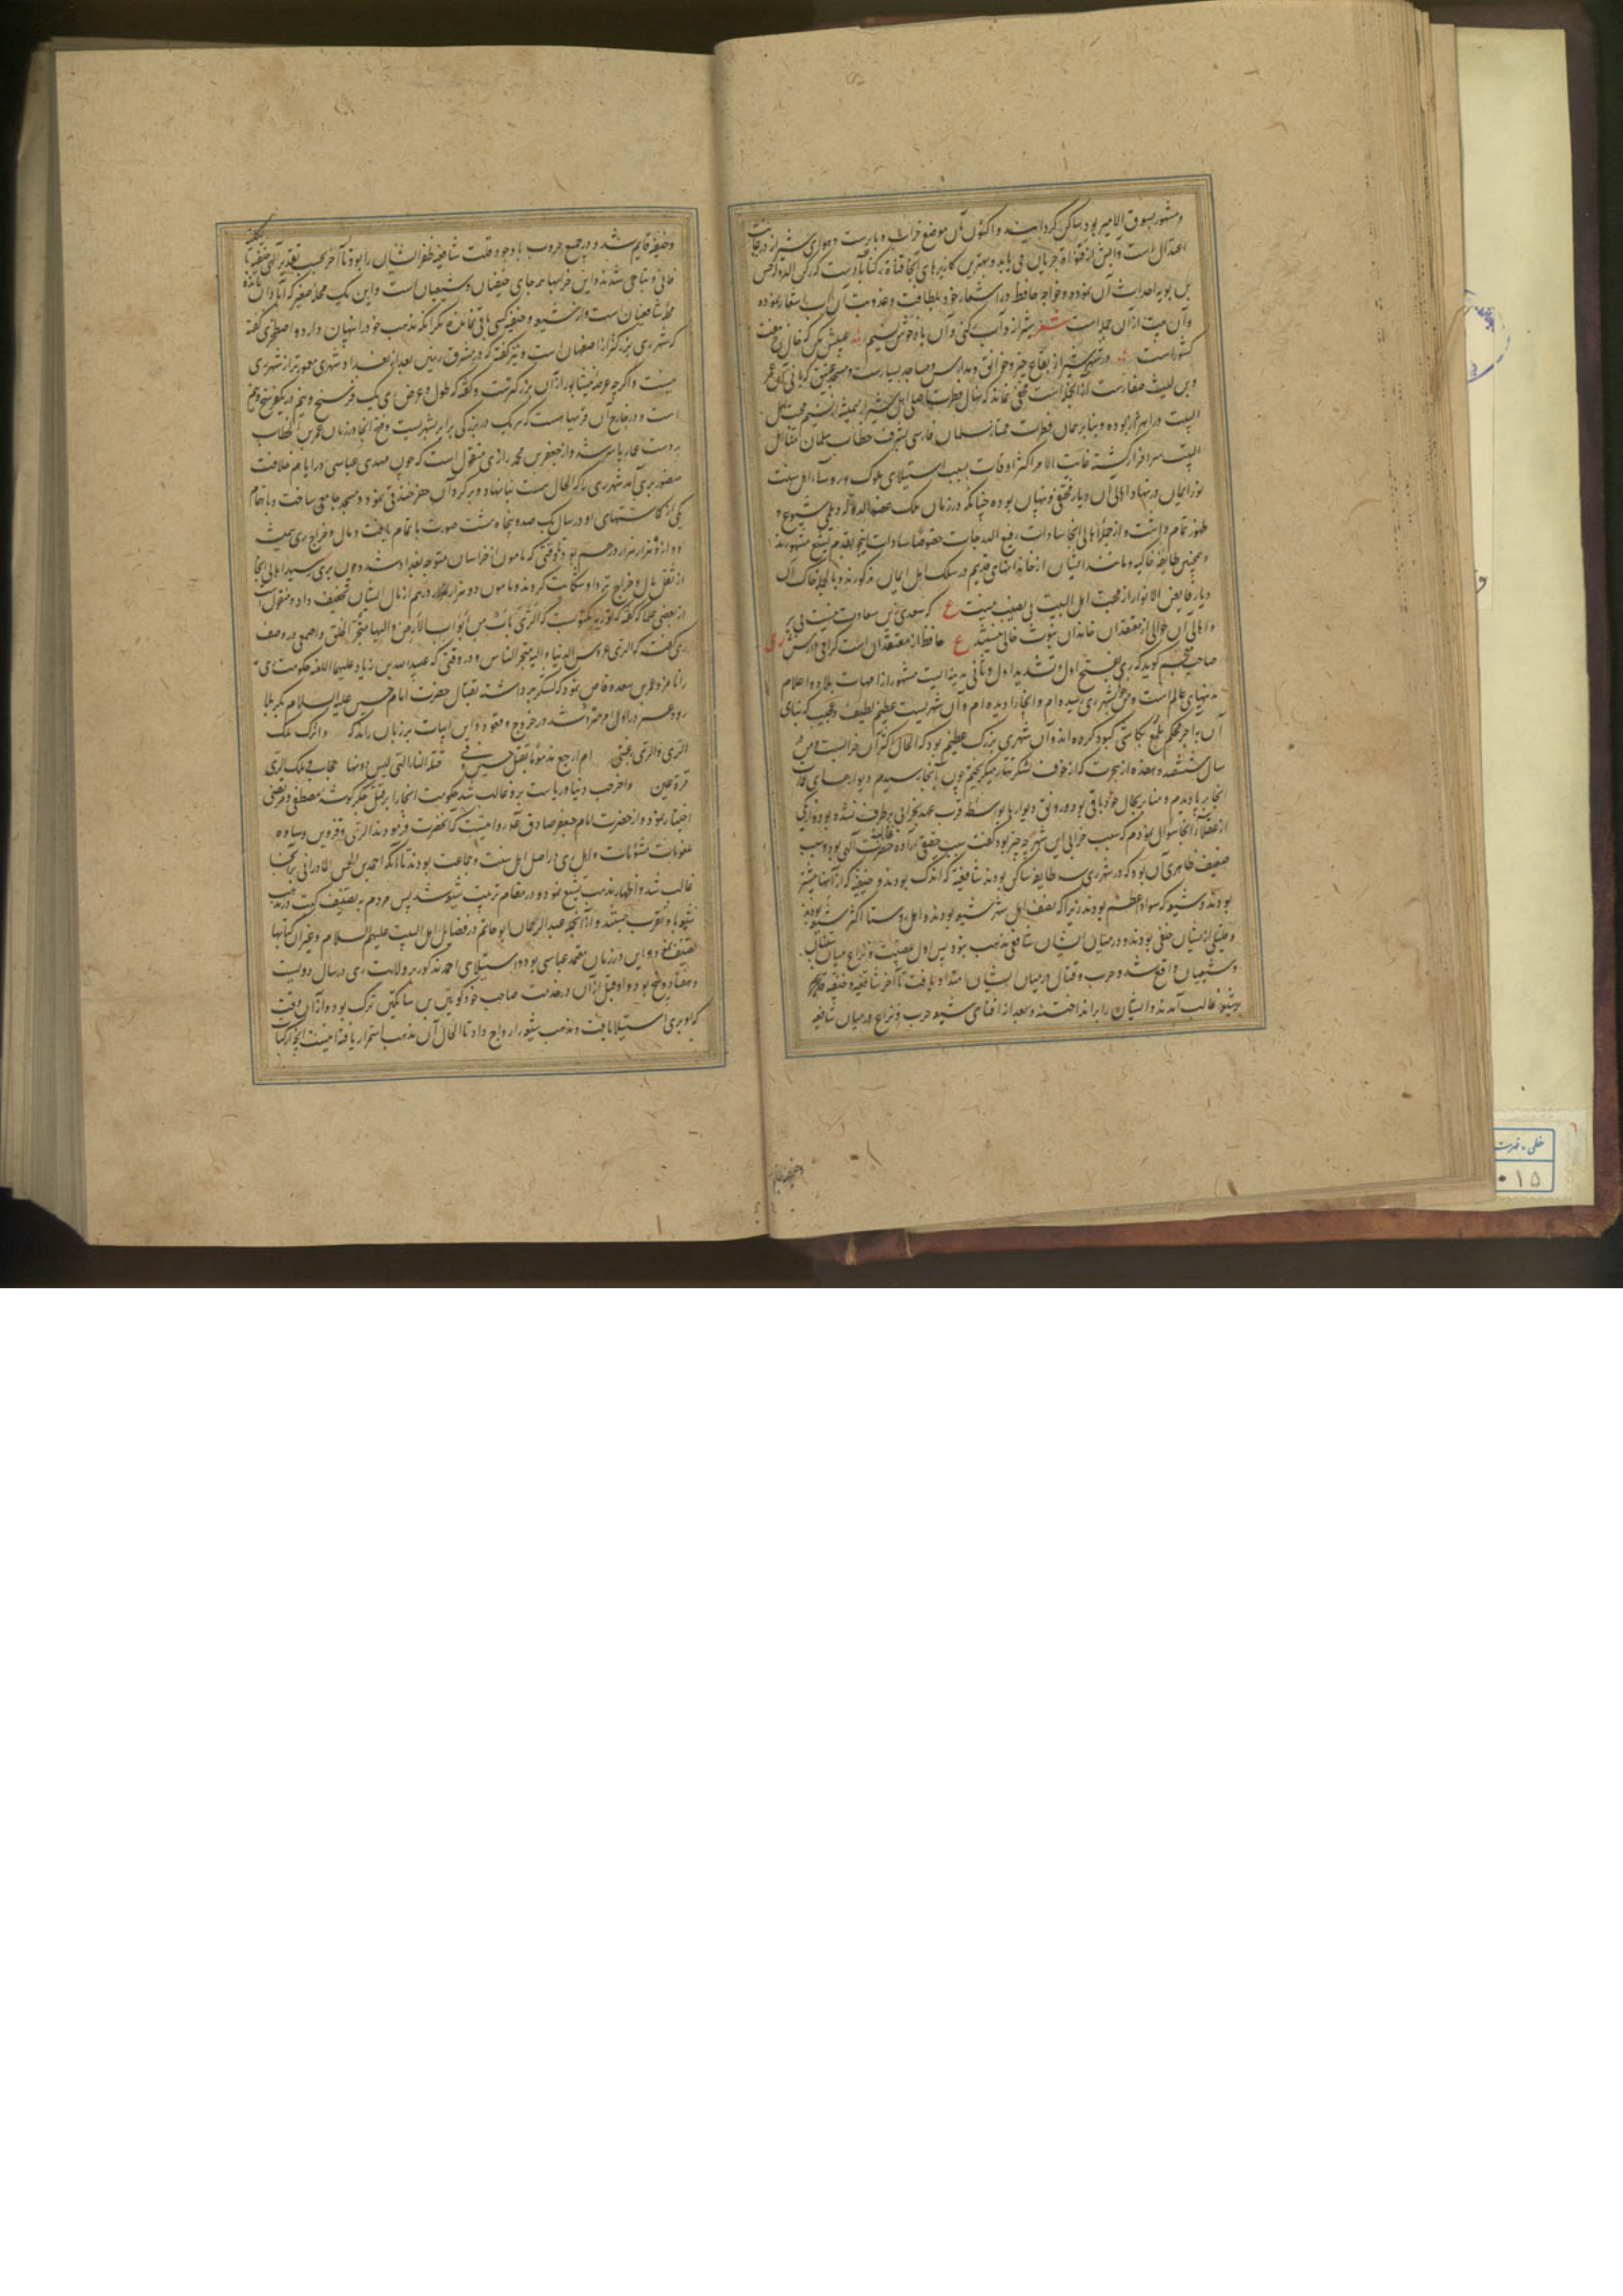 ومشهور بسوق الامیر بود ساکن کردانیدند واکنون آن موضع خراب و بایرست وهوای شیراز در غایت
اعتدال است وآبش از قنوات جریان می یابد وبهترین کاریزهای آنجا قناة رکنابادست که رکن الدوله حسن
بن بویه احداث آن نموده وخواجه حافظ در اشعار خود بلطافت وعذوبت آن آب اشعار نموده
وآن بیت از آن جمله است شعر شیراز و آب رکنی وآن باد خوش نسیم عیبش مکن که خال رخ هفت
کشورست ودر شهر شیراز بقاع خیر وخوانق ومدارس ومساجد بسیارست ومسجد عتیق که بانی آن عمرو
بن لیث صفارست از آنجمله است مخفی نماند که نهال فطرت اصلی اهل شیراز همیشه از نسیم محبت اهل
البیت در اهتزاز بوده وبنابر همان فطرت ممتاز سلمان فارسی بشرف خطاب سلمان منا اهل
البیت سرافراز گشته غایت الامر اکثر اوقات بسبب استیلای ملوک ورؤساء اهل سنت
نور ایمان در نهاد اهالی آن دیار مختفی وپنهان بوده چنانکه در زمان ملک عضد الدوله دیلمی شیوع و
ظهور تمام داشت واز جمله اهالی آنجا سادات رفیع الدرجات خصوصا سادات اینجو بقدم تشیع مشهورند
وهمچنین طایفه خاکیه ومانند ایشان از خاندانهای قدیم در سلک اهل ایمان مذکورند وبالجمله خاک آن
دیار فایض الانوار از محبت اهل البیت بی نصیب نیست ع که سعدی بس سعادت نیست بی بر
واهالی آن حوالی از معتقدان خاندان نبوت خالی نیستند ع حافظ از معتقدان است گرامی دارش ری
صاحب معجم گوید که ری بفتح اول وتشدید اول وثانی مدینه ایست مشهور از امهات بلاد واعلام
مدینهای عالم است ومن بشهر ری رسیده ام وآنجا را دیده ام وآن شهریست عظیم لطیف وعجیب که بنای
آن با آجر محکم ملمع بکاشی کبود کرده اند وآن شهری بزرگ عظیم بود که الحال اکثر آن خرابست ومن در
سال ششصد وهفده از هجرت که از خوف لشکر تتار میگریختم چون بآنجا رسیدم دیوارهای خانهای
آنجا برپا دیدم ومنابر بحال خود باقی بود ورونق دیوارها بواسطه قرب عهد بخرابی برطرف نشده بود از یکی
از عقلاء آنجا سوال نمودم که سبب خرابی این شهر چه چیز بود گفت سبب حقیقی اراده حضرت الهی بود وسبب
ضعیف ظاهری آن بود که در شهر ری سه طایفه ساکن بودند شافعیه که اندک بودند وحنفیه که از آنها بیشتر
بودند وشیعه که سواد اعظم بودند زیرا که نصف اهل شهر شیعه بودند واهل روستا اکثر شیعه بودند
وقلیلی از ایشان حنفی بودند ودر میان ایشان شافعی مذهب نبود پس اول عصبیت ونزاع میان سنیان
وشیعیان واقع شد وحرب وقتال در میان ایشان امتداد یافت تا آخر شافعیه وحنفیه
بر شیعه غالب آمدند وایشان را برانداختند وبعد از افنای شیعه حرب ونزاع در میان شافعیه
وحنفیه قایم
وحنفیه قایم شد ودر جمیع حروب با وجود قلت شافعیه ظفر ایشان را بود تا آخر بحسب تقدیر الهی حنفیه
فانی ومتلاشی شدند واین خرابیها همه جای حنفیان وشیعیان است واین یک محله صغیر که آبادان مانده
محله شافعیان ست واز شیعه وحنفیه کسی باقی نمانده مگر آنکه مذهب خود را پنهان دارد واصطخری گفته
که شهر ری بزرگتر از اصفهان است ونیز گفته که در مشرق زمین بعد از بغداد شهری معمورتر از شهر ری
نیست واگرچه عرصه نیشابور از آن بزرگترست وگفته که طول وعرض ری یک فرسخ ونیم در یک فرسخ ونیم
است ودر خارج آن قریها هست که هر یک در بزرگی برابر شهریست وفتح آنجا در زمان عمر بن الخطاب
بدست عمار یاسر شد واز جعفر بن محمد رازی منقول است که چون مهدی عباسی در ایام خلافت
منصور بری آمد شهر ری را که الحال هست بنا نهاد وبر گرد آن حفر خندقی نمود ومسجد جامعی ساخت وباتمام
یکی از گماشتهای او در سال یک صد وپنجاه وهشت صورت اتمام یافت ومال وخراج ری همیشه
دوازده هزار هزار درهم بود تا وقتی که مامون از خراسان متوجه بغداد شد وچون بری رسید اهالی آنجا
از ثقل مال وخراج نزد او شکایت کردند ومامون دو هزار هزار درهم از مال ایشان تخفیف داد ومنقول است
از بعضی علما که گفته که در توریة مکتوبست که الری باب من ابواب الارض والیها متجر الخلق واصمعی در وصف
ری گفت که الری عروس الدنیا والیه متجر الناس ودر وقتی که عبید الله بن زیاد علیهما اللعنه حکومت ری
را نامزد عمر بن سعد وقاص نمود که لشکر برداشته بقتال حضرت امام حسین علیه السلام بکربلا
رود عمر در اول امر متردد شد در خروج وقعود واین ابیات بر زبان راند که واترک ملک
الری والری رغبتی ام ارجع مذموما بقتل حسین وفی قتله النار التی لیس دونها حجاب وملک الری
قرة عین واخر حب دنیا وریاست برو غالب شد حکومت آنجا را بر قتل جگر گوشه مصطفی ومرتضی
اختیار نمود واز حضرت امام جعفر صادق علیه روایتست که آنحضرت فرمودند الری وقزوین وساوه
ملعونات مشؤمات واهل ری در اصل اهل سنت وجماعت بودند تا آنکه احمد بن الحسن المادرانی بر آنجا
غالب شد واظهار مذهب تشیع نمود ودر مقام تربیت شیعه شد پس مردم به تصنیف کتب در مذهب
شیعه باو تقرب جستند واز آنجمله عبد الرحمان ابو حاتم در فضایل اهل البیت علیهم السلام وغیر آن کتابها
تصنیف نمود واین در زمان معتمد عباسی بود واستیلای احمد مذکور بر ولایت ری در سال دویست
وهفتاد وپنج بود واو قبل از آن در خدمت صاحب خود کوتکین بن ساتکین ترک بود واز آن وقت
که او بری استیلا یافت ومذهب شیعه را رواج داد تا الحال آن مذهب استمرار یافته
خطی - فهرست
۰۱۵